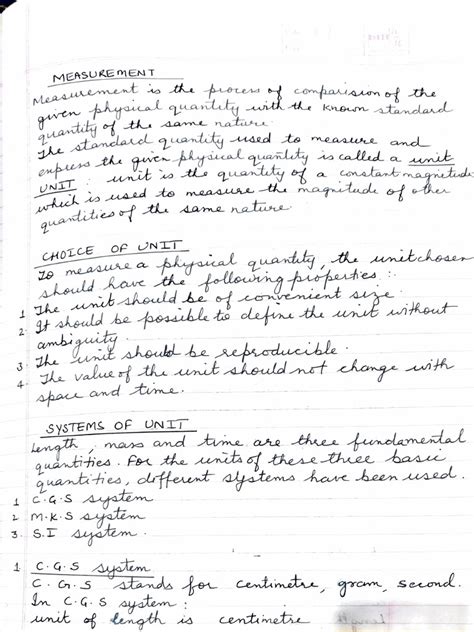 MEASUREMENT
Measurement is the process of comparision of the
given physical quantity with the known standard
quantity of the same nature.
The standard quantity used to measure and
express the given physical quantity is called a unit
UNIT : unit is the quantity of a constant magnitude
which is used to measure the magnitude of other
quantities of the same nature
CHOICE OF UNIT
To measure a physical quantity, the unit chosen
should have the following properties :
1 The unit should be of convenient size
2. It should be possible to define the unit without
ambiguity.
3. The unit should be reproducible.
4. The value of the unit should not change with
space and time.
SYSTEMS OF UNIT
Length, mass and time are three fundamental
quantities. For the units of these three basic
quantities, different systems have been used.
1 C.G.S system
2 M.K.S system
3. S.I system.
1 C.G.S system
C.G.S stands for centimetre, gram, second.
In C.G.S system :
unit of length is centimetre